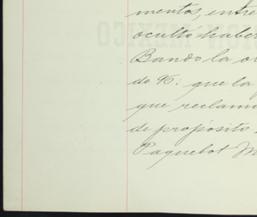 mentos, entre
oculto haber
Bando la or
do 95: que la
que reclama
de propósito
Paquebot M